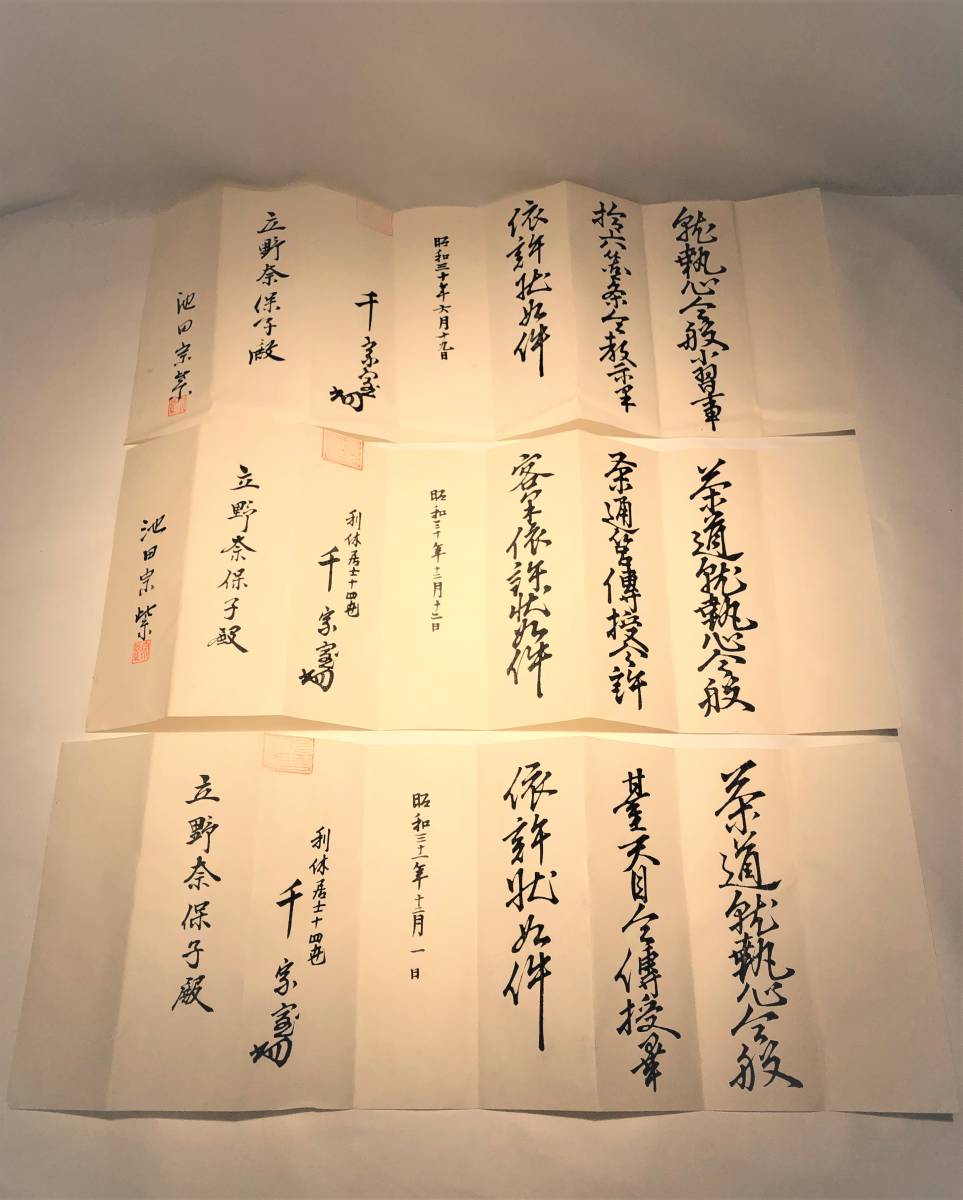 就執心今般小習事
拾六箇条令教示畢
依許状如件
昭和三十年六月十九日
千宗室
立野奈保子殿
池田宗紫
茶道就執心今般
茶通箱傳授令許
容畢依許状如件
昭和三十年十二月十二日
利休居士十四世
千宗室
立野奈保子殿
池田宗紫
茶道就執心今般
臺天目令傳授畢
依許状如件
昭和三十一年十二月一日
利休居士十四世
千宗室
立野奈保子殿